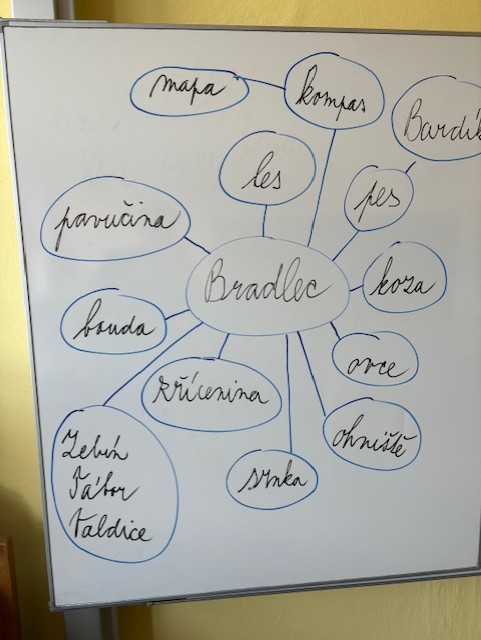 mapa
kompas
Bardík
les
pes
pavučina
Bradlec
koza
bouda
ovce
zřícenina
ohniště
srnka
Zebín
Tábor
Valdice